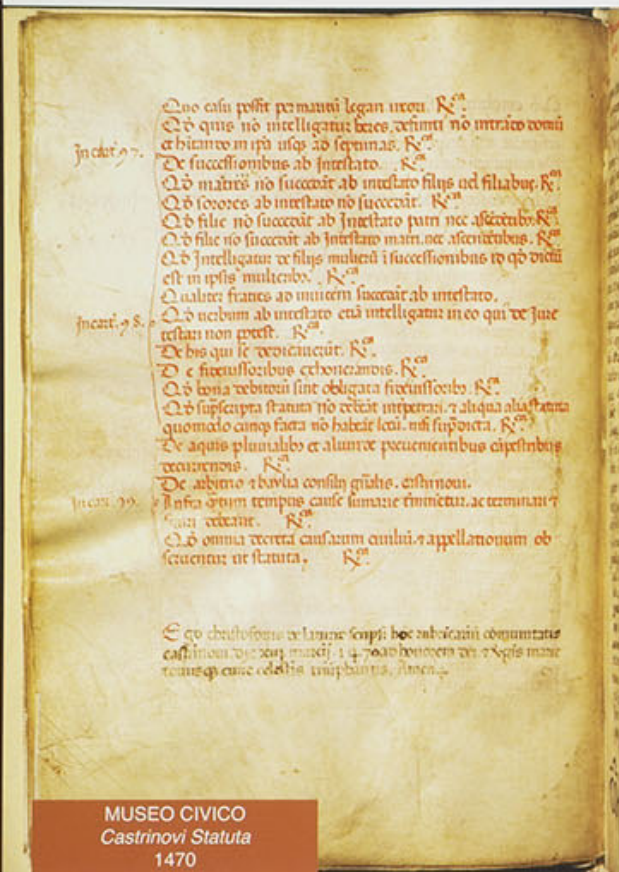 Quo casu possit per maritū legari uxori. R͞ca.
Qd quis nō intelligatur heres, defuncti nō intrādo domū
In cart. 97.
et hitando in ipa usqꝫ ad septimas. R͞ca.
De successionibus ab Intestato. R͞ca.
Qd matres nō succedāt ab intestato filijs uel filiabus. R͞ca.
Qd sorores ab intestato nō succedāt. R͞ca.
Qd filie nō succedāt ab Intestato patri nec ascēdētibꝫ. R͞ca.
Qd filie nō succedāt ab Intestato matri nec ascendētibus. R͞ca.
Qd Intelligatur de filijs mulierū ī successionibus id qd dictū
est in ipsis mulieribꝫ. R͞ca
Qualiter fratres ad inuicem succedāt ab intestato.
In cart. 98.
Qd uerbum ab intestato etiā intelligatur in eo qui de Jure
testari non potest. R͞ca.
De his qui se dedicauerūt. R͞ca.
De fideiussoribus exhonerandis. R͞ca
Qd bona debitorū sint obligata fideiussoribꝫ. R͞ca.
Qd supscripta statuta nō debeāt impetrari. ⁊ aliqua alia statuta
quomodo cunqꝫ facta nō habeāt locū. nisi supdicta. R͞ca.
De aquis pluuialibꝫ et aliunde prouenientibus
decurrendis. R͞ca.
De arbitrio ⁊ baylia consilij gn̄alis. castrinoui.
In cart. 99.
Infra tempus cause sumarie ac terminari ⁊
debeant. R͞ca.
Qd omnia decreta causarum ciuiliū. ⁊ appellationum ob
seruentur ut statuta. R͞ca.
Ego christoforus de scripsi hoc rubricariū comunitatis
castrinoui. die marcij. 1470 ad honorem dei ⁊ uirginis marie
totiusqꝫ curie celestis triūphantis. Amen.
MUSEO CIVICO
Castrinovi Statuta
1470